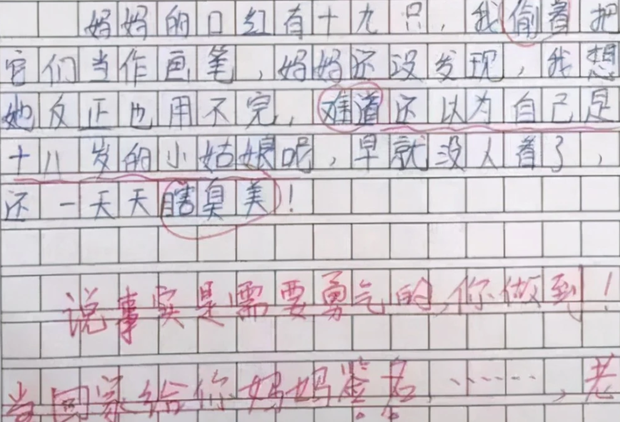 妈妈的口红有十九只，我偷着把
它们当作画笔，妈妈还没发现，我想
她反正也用不完，难道还以为自己是
十八岁的小姑娘呢，早就没人看了，
还一天天瞎臭美！
说事实是需要勇气的，你做到！
当回家给你妈妈签名，……，老